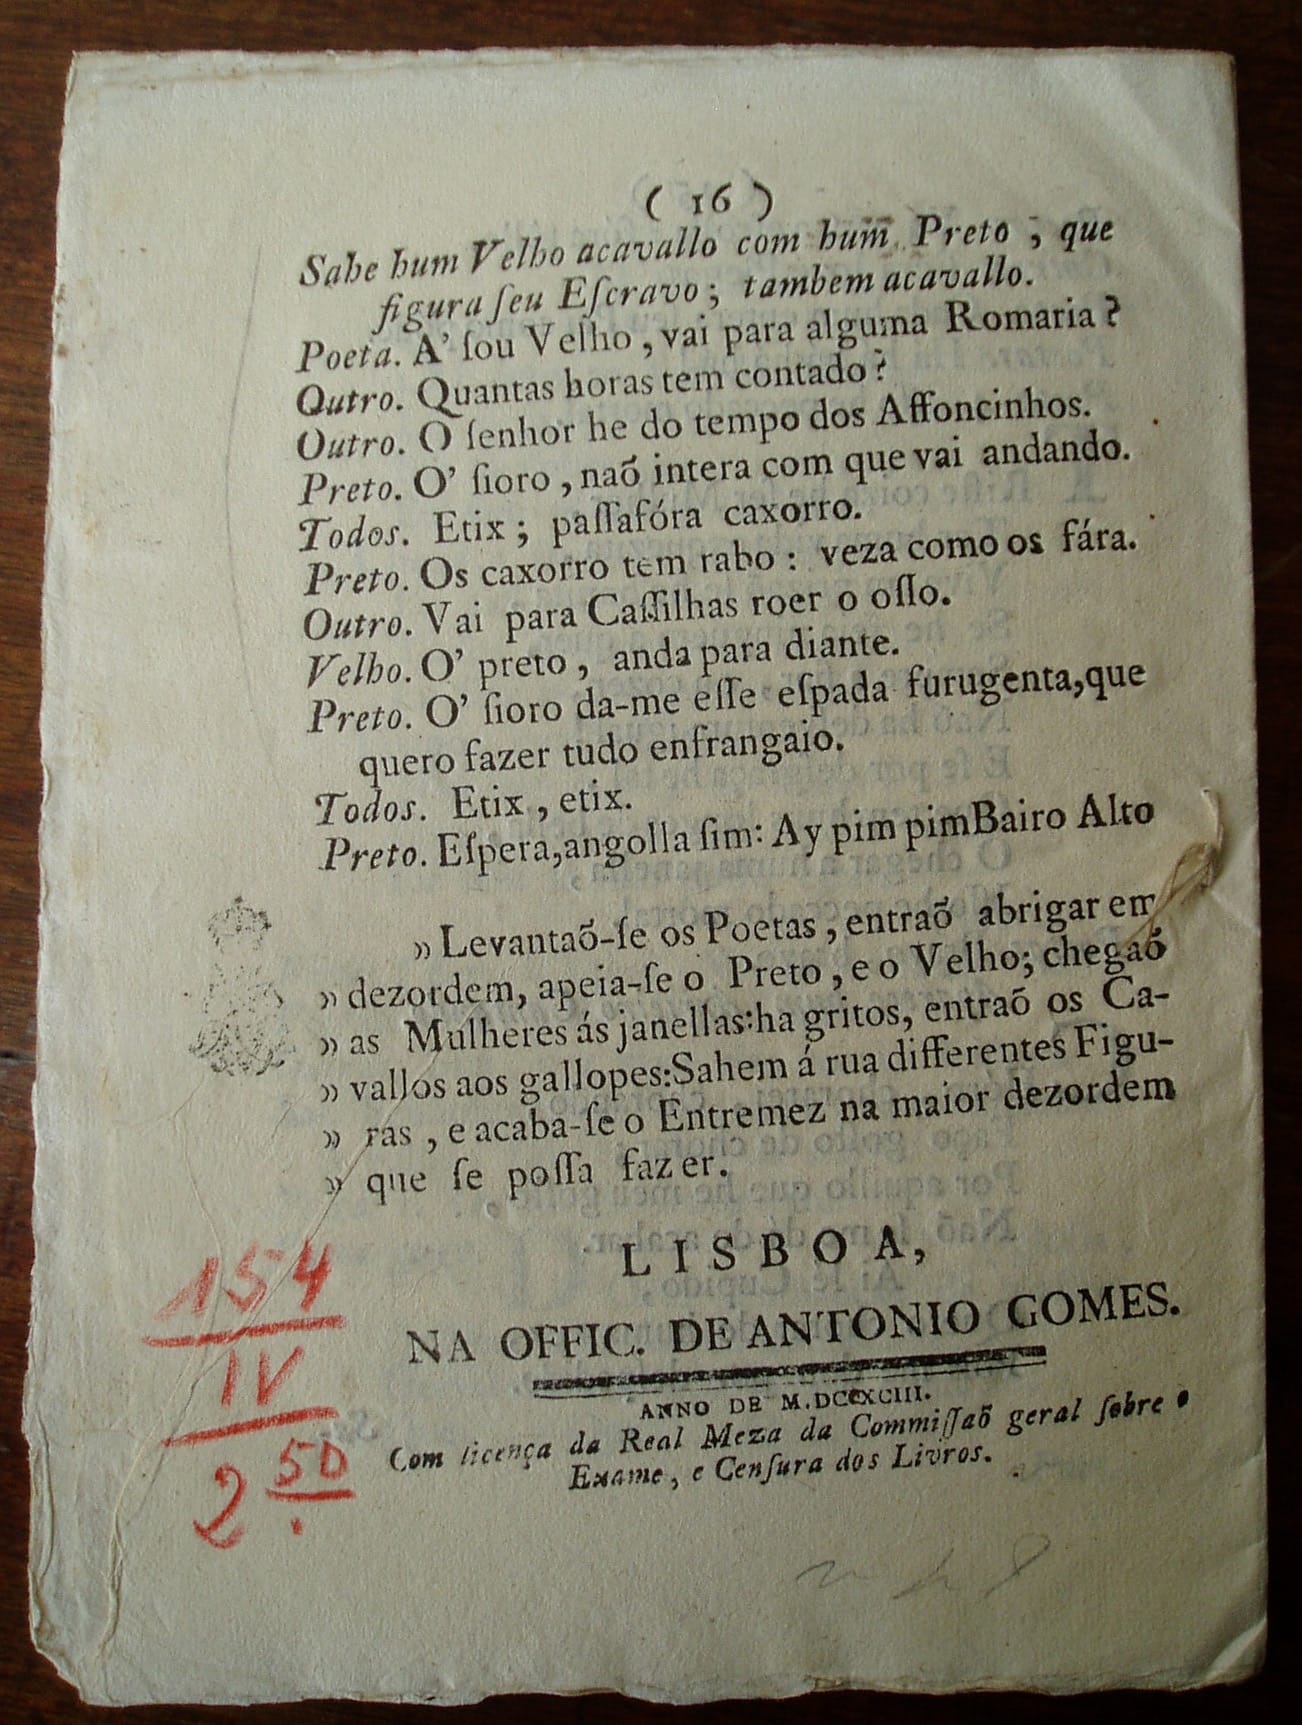 ( 16 )
Sahe hum Velho acavallo com hum Preto ; que
figura ſeu Eſcravo ; tambem acavallo.
Poeta. A' ſou Velho , vai para alguma Romaria ?
Outro. Quantas horas tem contado ?
Outro. O ſenhor he do tempo dos Affoncinhos.
Preto. O' ſioro , naõ intera com que vai andando.
Todos. Etix ; paſſafóra caxorro.
Preto. Os caxorro tem rabo : veza como os fára.
Outro. Vai para Caſſilhas roer o oſſo.
Velho. O' preto , anda para diante.
Preto. O' ſioro da-me eſſe eſpada furugenta,que
quero fazer tudo enfrangaio.
Todos. Etix , etix.
Preto. Eſpera,angolla ſim: Ay pim pim Bairo Alto
» Levantaõ-ſe os Poetas , entraõ abrigar em
» dezordem, apeia-ſe o Preto , e o Velho; chegaõ
» as Mulheres ás janellas:ha gritos, entraõ os Ca-
» vallos aos gallopes:Sahem á rua differentes Figu-
» ras , e acaba-ſe o Entremez na maior dezordem
» que ſe poſſa fazer.
LISBOA,
NA OFFIC. DE ANTONIO GOMES.
ANNO DE M.DCCXCIII.
Com licença da Real Meza da Commiſſaõ geral ſobre o
Exame, e Cenſura dos Livros.
154
IV
2 50